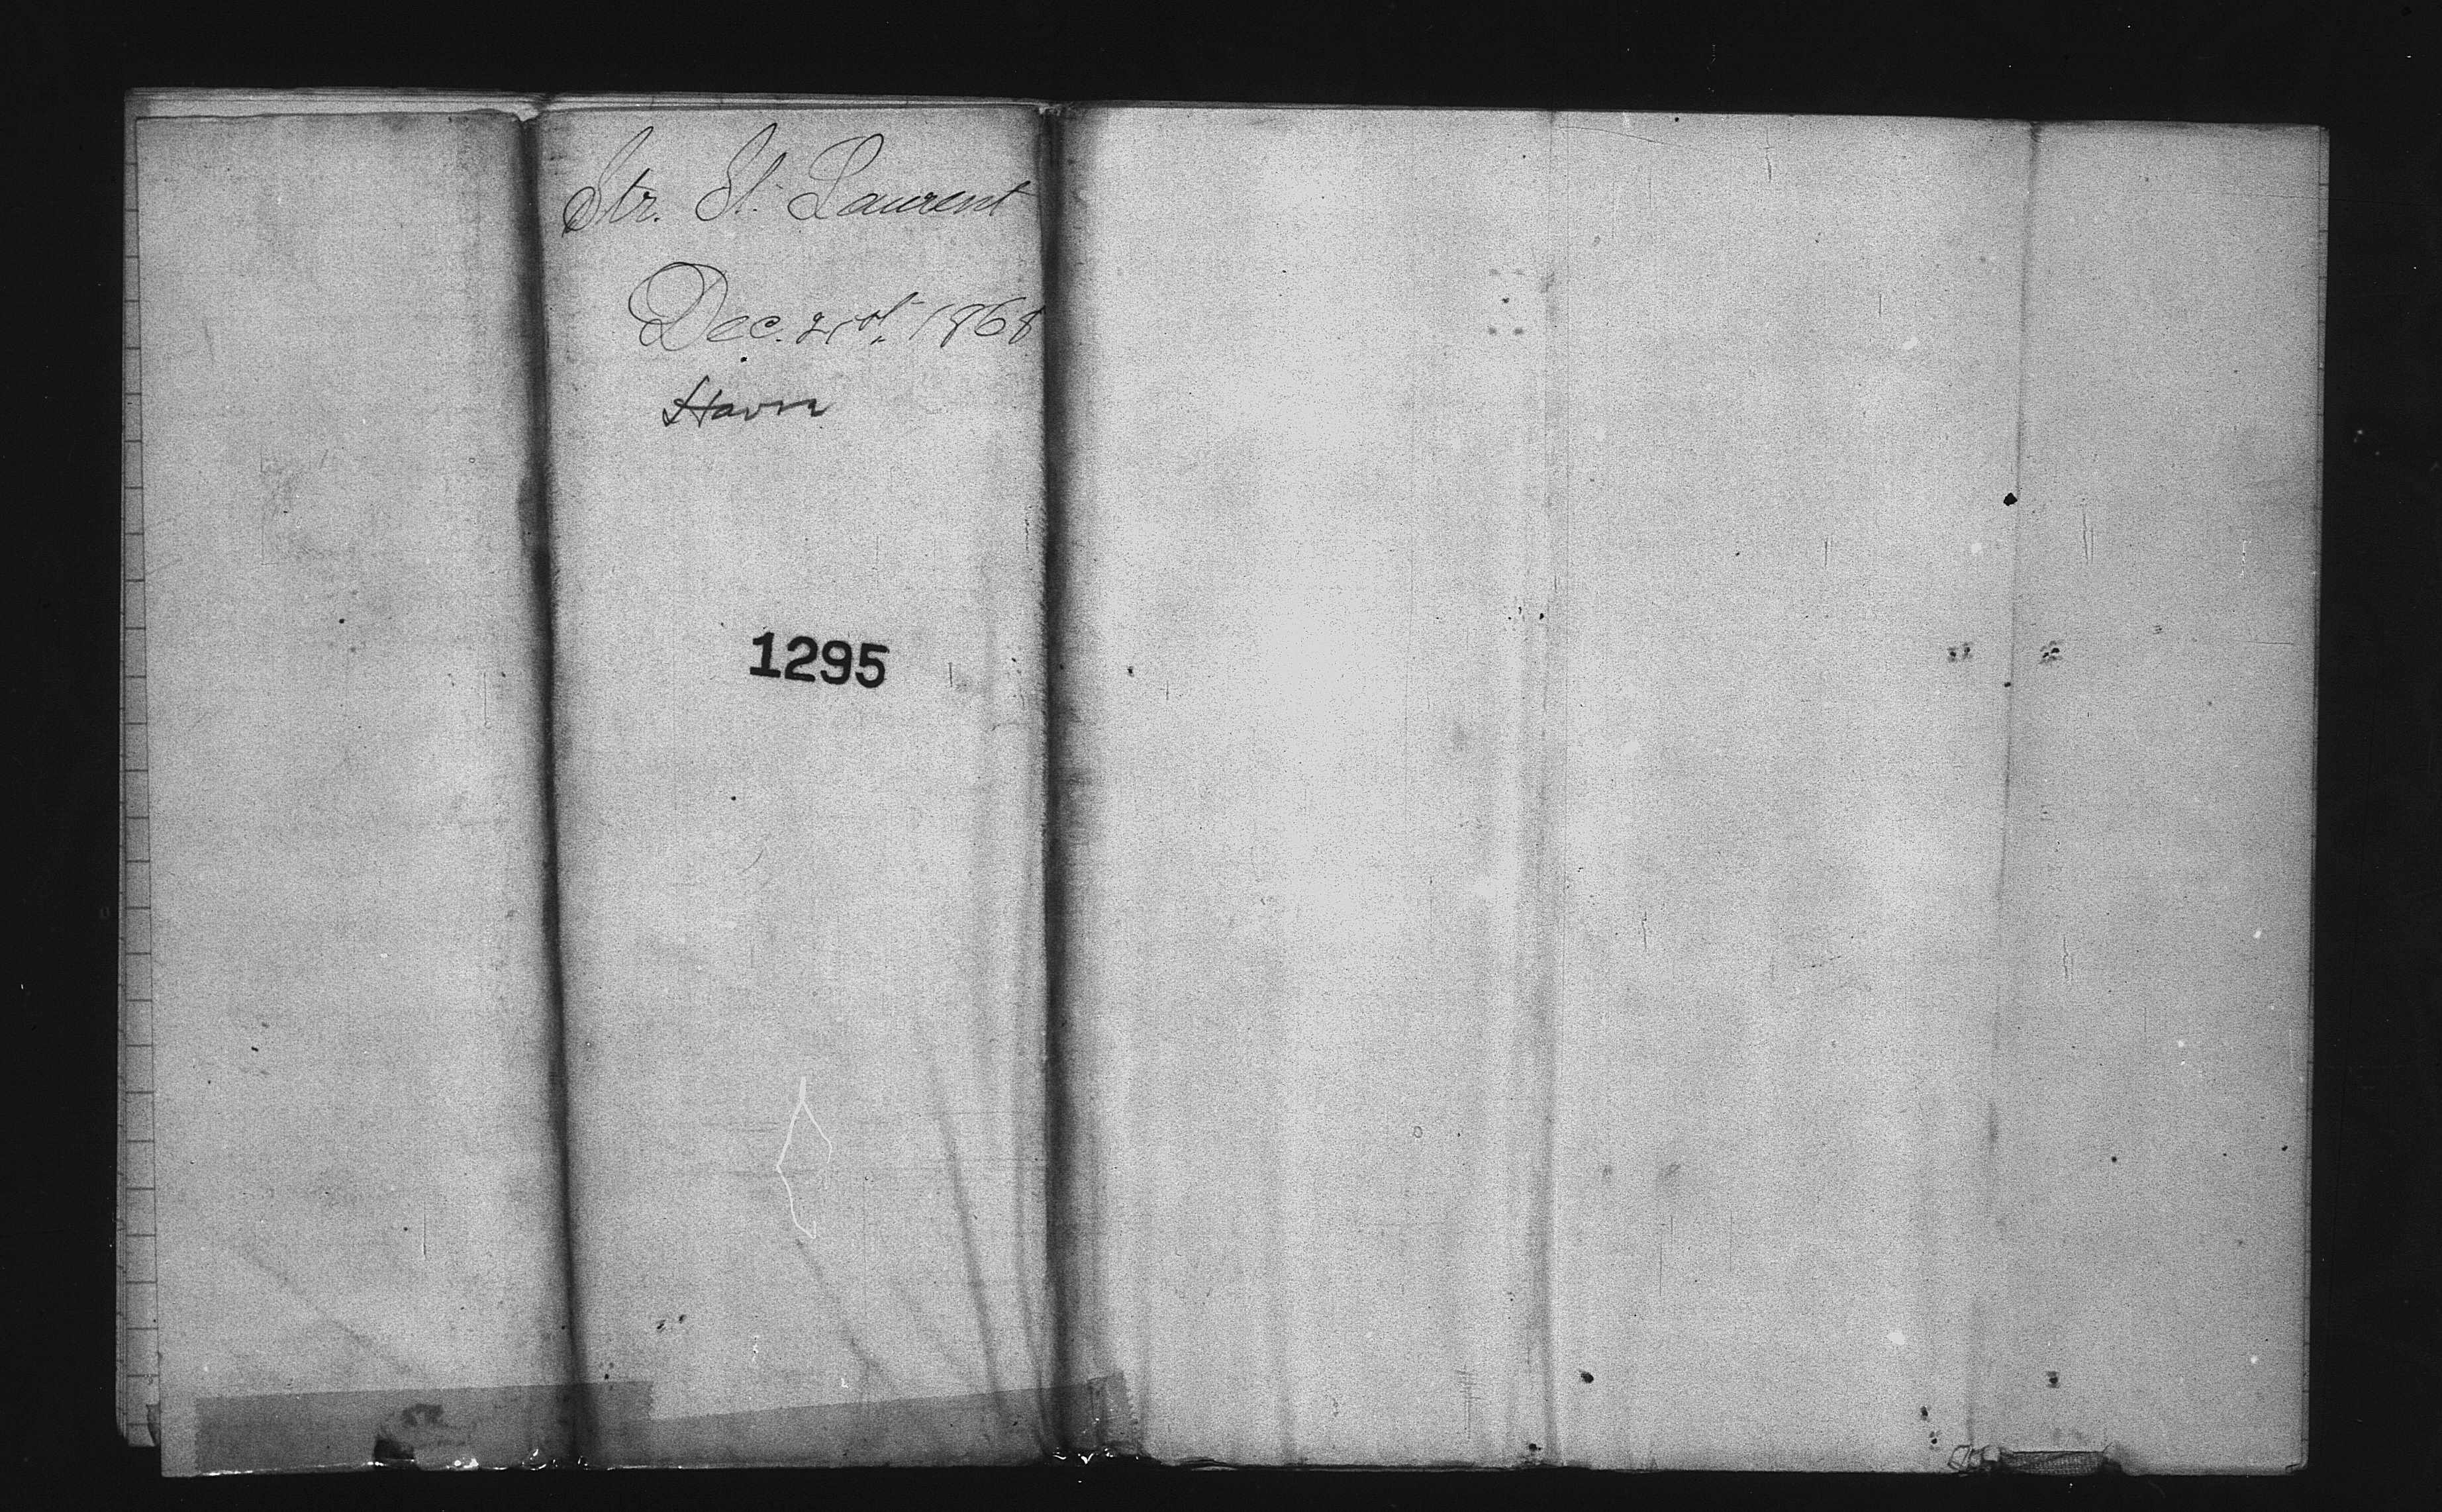 Str. St. Laurent
Dec. 21st 1868
Havre
1295